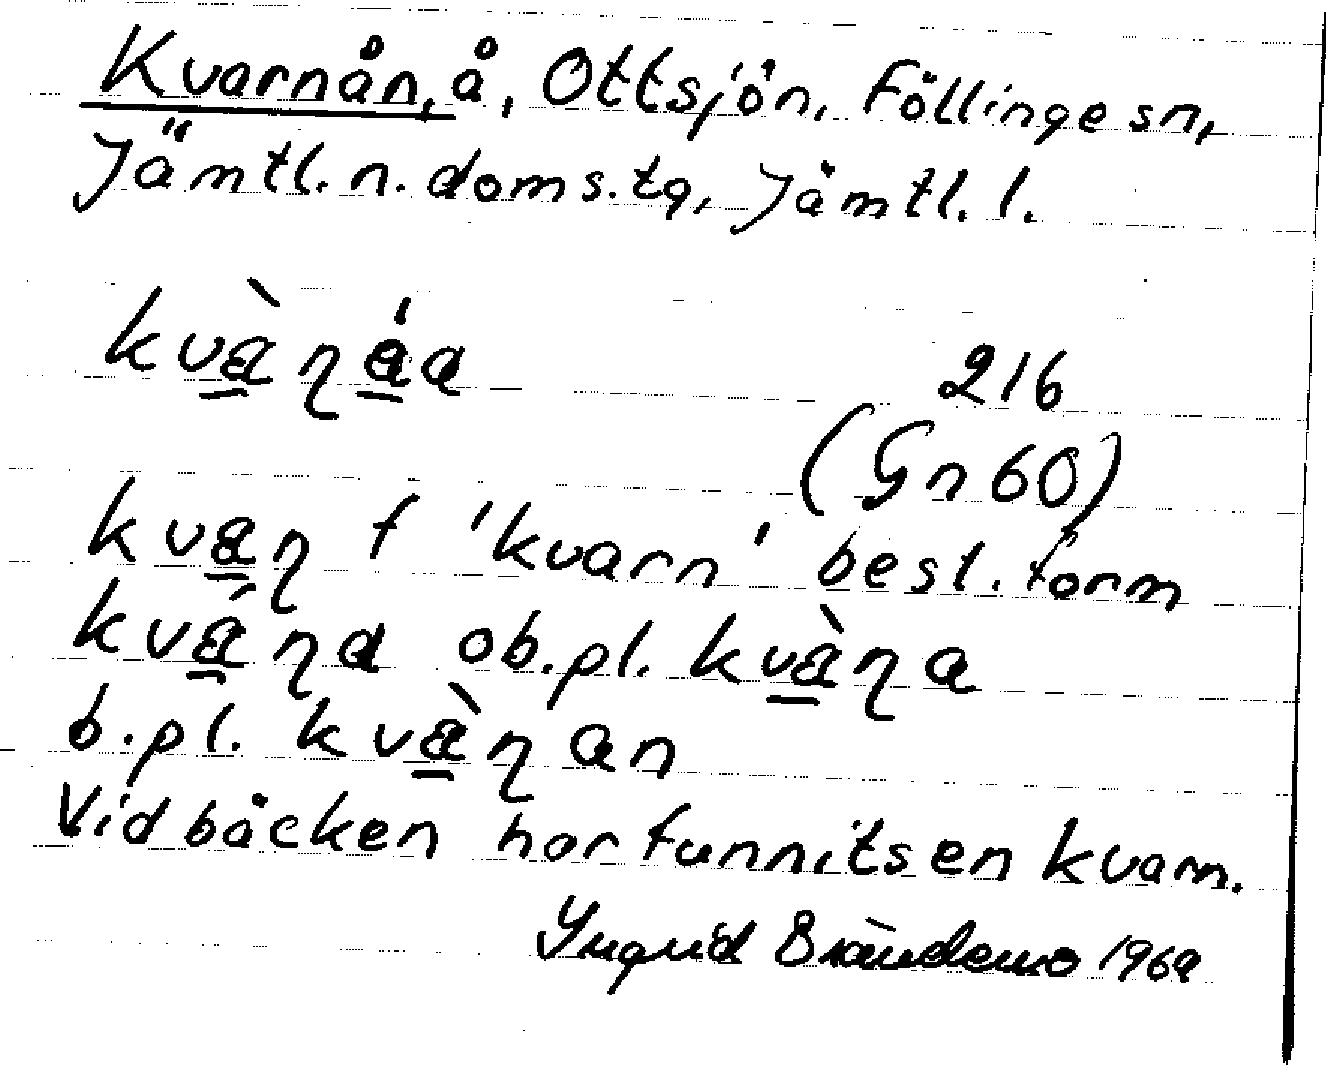 Kvarnån, å, Ottsjön, Föllinge sn,
Jämtl. n. doms.tg, Jämtl. l.
kvàɳáa
216
(Gn 60)
kvaɳ f 'kvarn' best. form
kváɳa ob.pl. kvàɳa
b.pl. kvàɳan
Vid bäcken har funnits en kvarn.
Yngvid Brändemo 1969